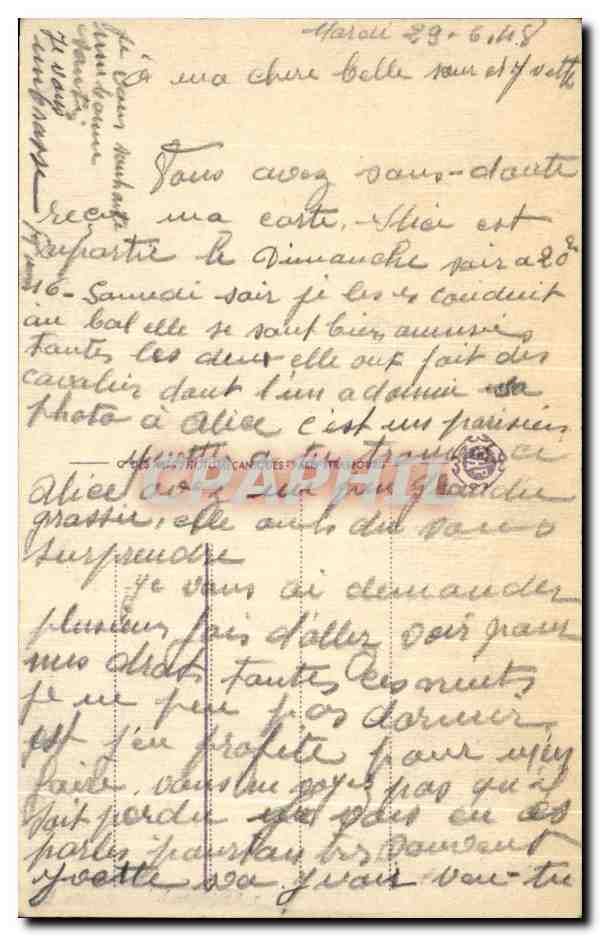 Mardi 29-6.48
à ma chere belle sœur et Yvette
Vous avez sans-doute
reçu ma carte, Alice est
repartie le Dimanche soir a 20h
16- Samedi soir je les es conduit
au bal elle se sont bien amusés
toutes les deux elle ont fait des
cavalier dont l'un a donnée sa
photo à Alice c'est un parisien
Alice un peu grandu
grassie, elle du vous
surprendre
Je vous ai demander
plusieurs fois d'aller voir pour
mes drats, toutes ces nuits
je ne peu pas dormir
est j'en profite pour
faire, vous ne pas qu'il
soit perdu je vous en es
parlés pourtan souvent
Yvette va y voir veu-tu
Je vous souhaite
une bonne
santé
Je vous
embrasse
CPAPHIL